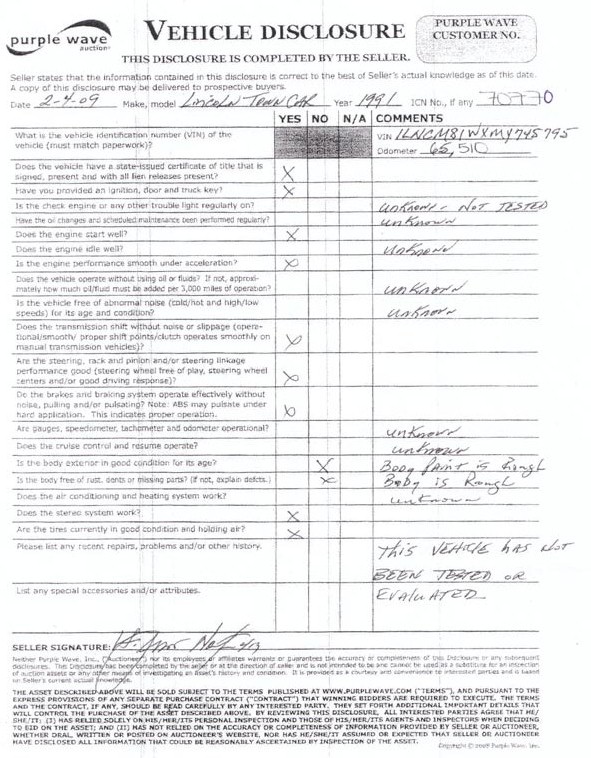 purple wave
auction
VEHICLE DISCLOSURE
PURPLE WAVE
CUSTOMER NO.
THIS DISCLOSURE IS COMPLETED BY THE SELLER.
Seller states that the information contained in this disclosure is correct to the best of Seller's actual knowledge as of this date.
A copy of this disclosure may be delivered to prospective buyers.
Date 2-4-09 Make, model Lincoln Town Car Year 1991 ICN No., if any 70770
YES NO N/A COMMENTS
What is the vehicle identification number (VIN) of the vehicle (must match paperwork)? VIN 1LNCM81WXMY745795
Odometer 65,510
Does the vehicle have a state-issued certificate of title that is
signed, present and with all lien releases present? X
Have you provided an ignition, door and truck key? X
Is the check engine or any other trouble light regularly on? unknown - NOT TESTED
Have the oil changes and scheduled maintenance been performed regularly? unknown
Does the engine start well? X
Does the engine idle well? unknown
Is the engine performance smooth under acceleration? X
Does the vehicle operate without using oil or fluids? If not, approxi-
mately how much oil/fluid must be added per 3,000 miles of operation? unknown
Is the vehicle free of abnormal noise (cold/hot and high/low
speeds) for its age and condition? unknown
Does the transmission shift without noise or slippage (opera-
tional/smooth/ proper shift points/clutch operates smoothly on
manual transmission vehicles)? X
Are the steering, rack and pinion and/or steering linkage
performance good (steering wheel free of play, steering wheel
centers and/or good driving response)? X
Do the brakes and braking system operate effectively without
noise, pulling and/or pulsating? Note: ABS may pulsate under
hard application. This indicates proper operation. X
Are gauges, speedometer, tachometer and odometer operational? unknown
Does the cruise control and resume operate? unknown
Is the body exterior in good condition for its age? X Body Paint is Rough
Is the body free of rust, dents or missing parts? (if not, explain defects.) X Body is Rough
Does the air conditioning and heating system work? unknown
Does the stereo system work? X
Are the tires currently in good condition and holding air? X
Please list any recent repairs, problems and/or other history. This VEHICLE HAS NOT
BEEN TESTED OR
List any special accessories and/or attributes. EVALUATED
SELLER SIGNATURE:
Neither Purple Wave, Inc., ("Auctioneer") nor its employees or affiliates warrants or guarantees the accuracy or completeness of this Disclosure or any subsequent
disclosures. This Disclosure has been completed by the seller or at the direction of seller and is not intended to be and cannot be used as a substitute for an inspection
of auction assets or any other means of investigating an asset's history and condition. It is provided as a courtesy and convenience to interested parties and is based
on Seller's current actual knowledge.
THE ASSET DESCRIBED ABOVE WILL BE SOLD SUBJECT TO THE TERMS PUBLISHED AT WWW.PURPLEWAVE.COM ("TERMS"), AND PURSUANT TO THE
EXPRESS PROVISIONS OF ANY SEPARATE PURCHASE CONTRACT ("CONTRACT") THAT WINNING BIDDERS ARE REQUIRED TO EXECUTE. THE TERMS
AND CONTRACT, IF ANY, SHOULD BE READ CAREFULLY BY ANY INTERESTED PARTY. THEY SET FORTH ADDITIONAL IMPORTANT DETAILS THAT
WILL CONTROL THE PURCHASE OF THE ASSET DESCRIBED ABOVE. BY REVIEWING THIS DISCLOSURE, ALL INTERESTED PARTIES AGREE THAT HE/
SHE/IT: (I) HAS RELIED SOLELY ON HIS/HER/ITS PERSONAL INSPECTION AND THOSE OF HIS/HER/ITS AGENTS AND INSPECTORS WHEN DECIDING
TO BID ON THE ASSET; AND (II) HAS NOT RELIED ON THE ACCURACY OR COMPLETENESS OF INFORMATION PROVIDED BY SELLER OR AUCTIONEER,
WHETHER ORAL, WRITTEN OR POSTED ON AUCTIONEER'S WEBSITE, NOR HAS HE/SHE/IT ASSUMED OR EXPECTED THAT SELLER OR AUCTIONEER
HAVE DISCLOSED ALL INFORMATION THAT COULD BE REASONABLY ASCERTAINED BY INSPECTION OF THE ASSET.
Copyright © 2008 Purple Wave, Inc.